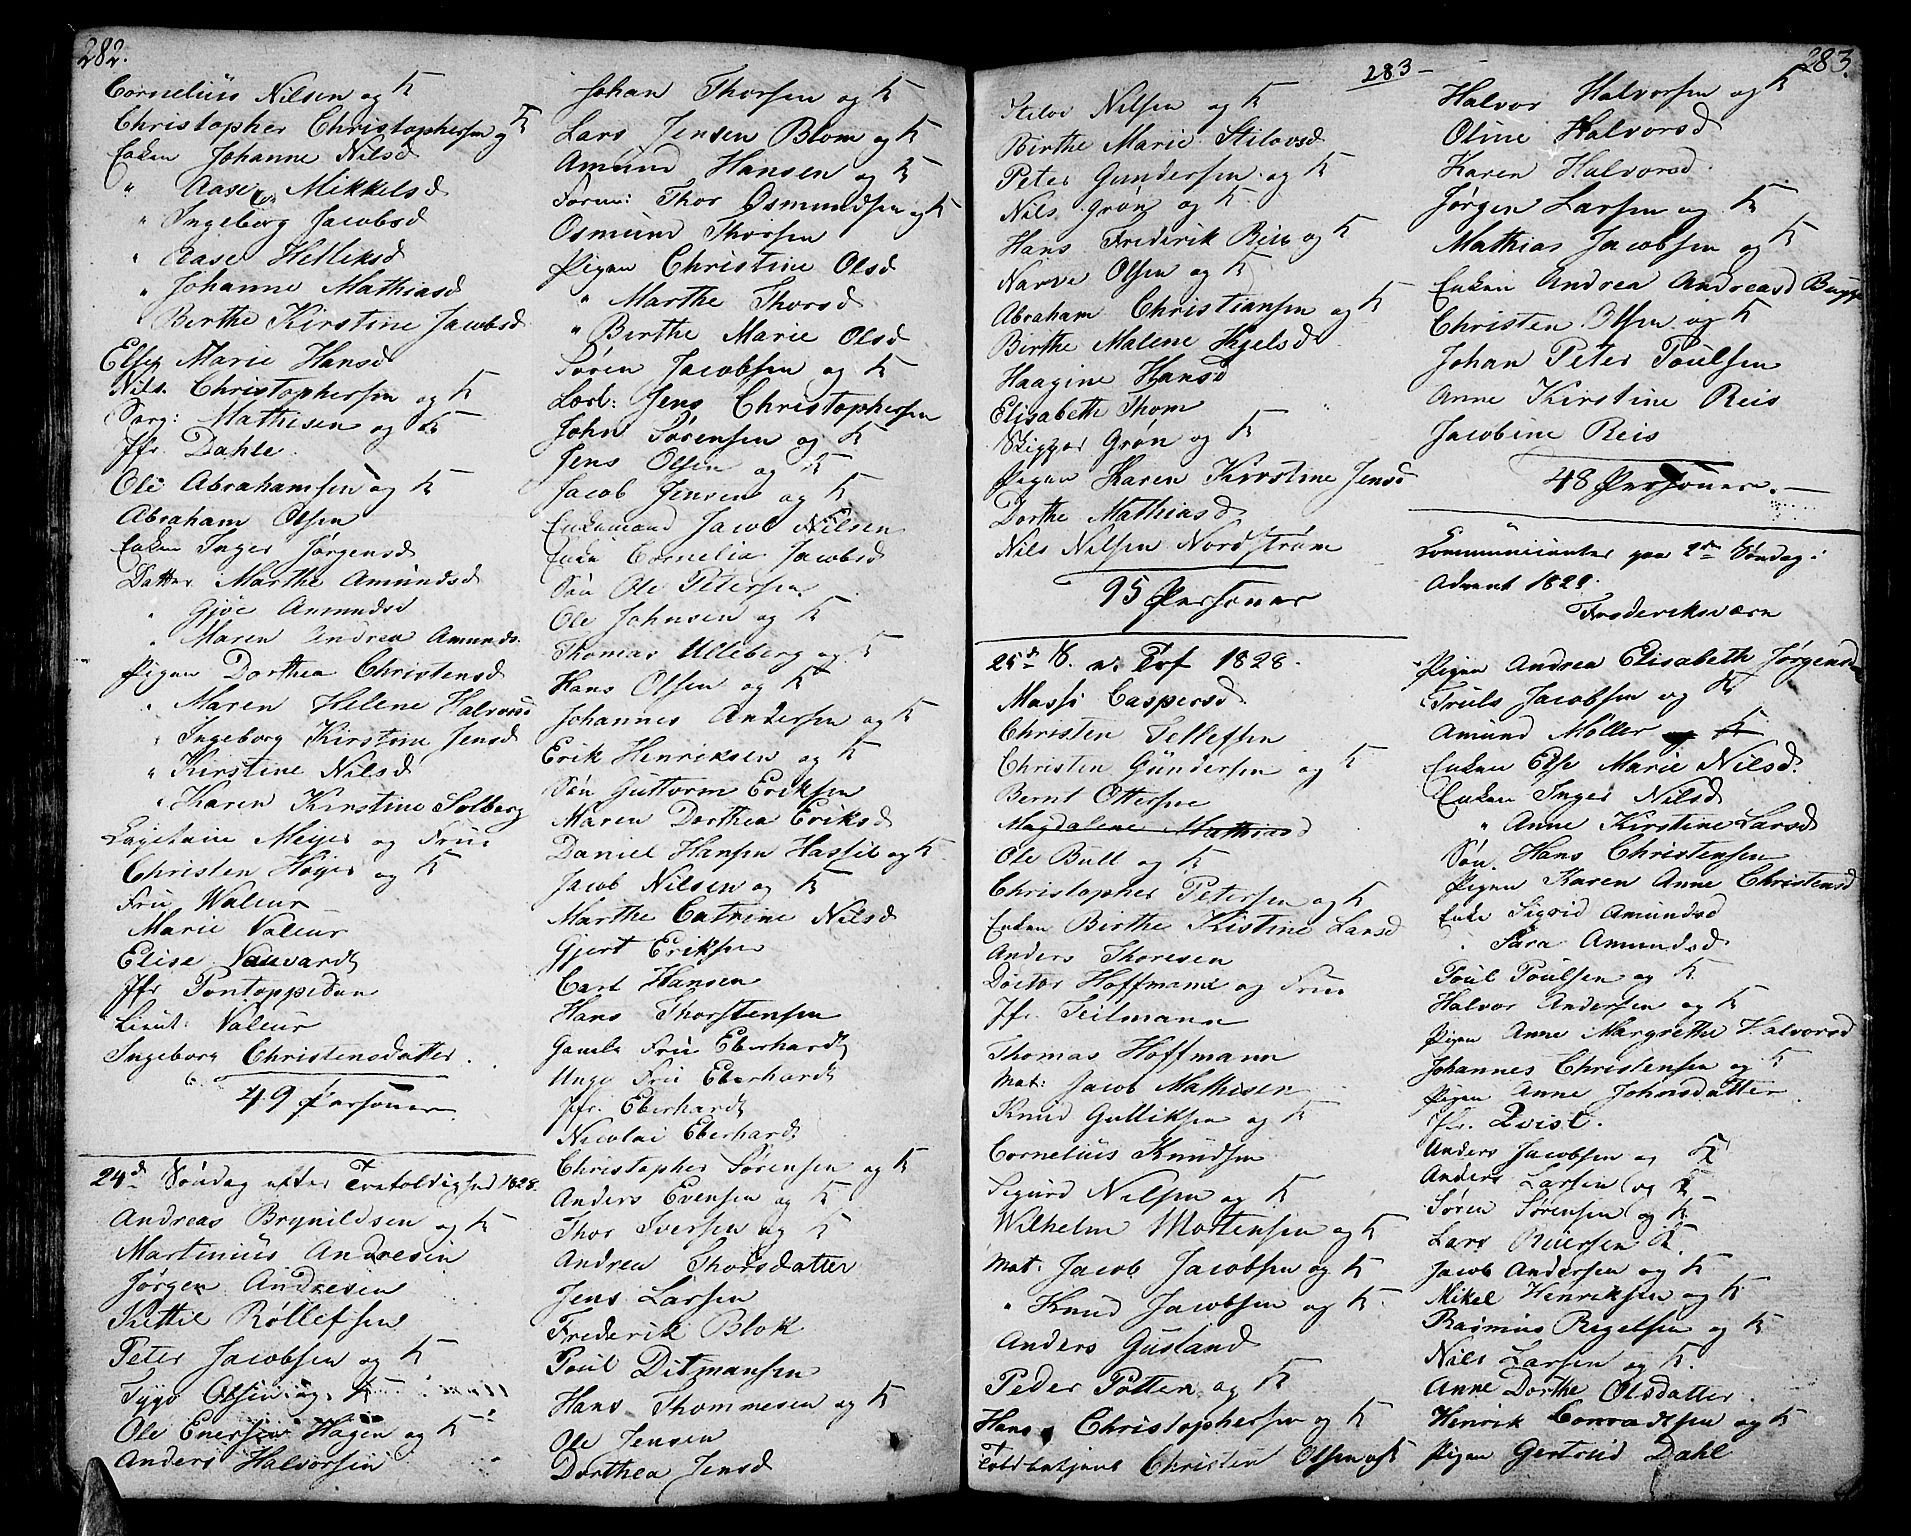 282.
Cornelius Nilsen og K
Christopher Christophersen og K
Enken Johanne Nilsd
" Aase Mikkelsd
" Ingeborg Jacobsd
" Aase Helliksd
" Johanne Mathiasd
" Berthe Kirstine Jacobsd
Else Marie Hansd
Nils Christophersen og K
Sarg: Mathisen og K
Jfr Dahle
Ole Abrahamsen og K
Abraham Olsen
Enken Inger Jørgensd
Datter Marthe Amundsd
" Gjøe Amundsd
" Maren Andrea Amunds
Pigen Dorthea Christensd
" Maren Helene Halvorsd
" Ingeborg Kirstine Jensd
" Kirstine Nilsd
" Karen Kirstine Solberg
Capitaine Meyer og Frue
Christen Høyer og K
Fru Waleur
Marie Valeur
Elise Vauvardt
Jfr Pontoppidan
Lieut: Valeur
Ingeborg Christensdatter.
49 Personer
24d Søndag efter Trefoldighed 1828.
Andreas Brynildsen og K
Martinius Andresen
Jørgen Andresen
Kittil Røllefsen
Peter Jacobsen og K
Tygo Olsen og K
Ole Enersen Hagen og K
Anders Halvorsen
Johan Thorsen og K
Lars Jensen Blom og K
Amund Hansen og K
Toren: Thor Osmundsen og K
Osmund Thorsen
Pigen Christine Olsd
" Marthe Thorsd
" Berthe Marie Olsd
Søren Jacobsen og K
Lærl: Jens Christophersen
John Sørensen og K
Jens Olsen og K
Jacob Jensen og K
Enkemand Jacob Nilsen
Enke Cornelia Jacobsd
Søn Ole Petersen
Ole Johnsen og K
Thomas Ulleberg og K
Hans Olsen og K
Johannes Andersen og K
Erik Henriksen og K
Søn Guttorm Eriksen
Maren Dorthea Eriksd
Daniel Hansen Hassil og K
Jacob Nilsen og K
Marthe Catrine Nilsd
Gjert Eriksen
Carl Hansen
Hans Thorstensen
Gamle Fru Eberhardt
Unge Fru Eberhardt
Jfr. Eberhardt
Nicolai Eberhardt
Christopher Sørensen og K
Anders Evensen og K
Thor Iversen og K
Andrea Thorsdatter
Jens Larsen
Frederik Blok
Poul Ditmansen
Hans Thommesen og K
Ole Jensen
Dorthea Jensd
283
283.
Stilov Nilsen og K
Birthe Marie Stilovsd
Peter Gundersen og K
Nils Grøn og K
Hans Frederik Reis og K
Narve Olsen og K
Abraham Christiansen og K
Birthe Malene Kjelsd
Haagine Hansd
Elisabeth Thom
Grøn og K
Pigen Karen Kirstine Jensd
Dorthe Mathiasd
Nils Nilsen Nordstrøm
95 Personer
25d S. n. Tref 1828.
Massi Caspersd
Christen Tellefsen
Christen Gundersen og K
Bernt Ottersen
Magdalene Mathiasd
Ole Bull og K
Christopher Petersen og K
Enken Birthe Kistine Larsd
Anders Thoresen
Doctor Hoffmann og Frue
Jfr. Teilmann
Thomas Hoffmann
Mat: Jacob Mathisen
Knud Gulliksen og K
Cornelius Knudsen
Sigurd Nilsen og K
Wilhelm Mortensen og K
Mat: Jacob Jacobsen og K
" Knud Jacobsen og K
Anders Gusland
Peder Potten og K
Hans Christophersen og K
Toldbetjent Christen Olsen og K
Halvor Halvorsen og K
Oline Halvorsd
Karen Halvorsd.
Jørgen Larsen og K
Mathias Jacobsen og K
Enken Andrea Andreasd Bugge
Christen Olsen og K
Johan Peter Poulsen
Anne Kirstine Reis
Jacobine Reis
48 Personer.
Communicanter paa 2den Søndag i
Advent 1828.
Frederiksværn
Pigen Andrea Elisabeth Jørgensd
Truls Jacobsen og K
Amund Moller og K
Enken Else Marie Nilsd.
Enken Inger Nilsd
" Anne Kirstine Larsd
Søn Hans Christensen
Pigen Karen Anne Christensd
Enke Sigrid Amundsd
" Sara Amundsd
Poul Poulsen og K
Halvor Andersen og K
Pigen Anne Margrethe Halvorsd
Johannes Christensen og K
Pigen Anne Johnsdatter.
Jfr. Qvist.
Anders Jacobsen og K
Anders Larsen og K
Søren Sørensen og K
Lars Riiersen K.
Jacob Andersen og K
Mikel Henriksen og K
Rasmus Regelsen og K
Nils Larsen og K.
Anne Dorthe Olsdatter.
Henrik Conradsen og K
Pigen Gertrud Dahl